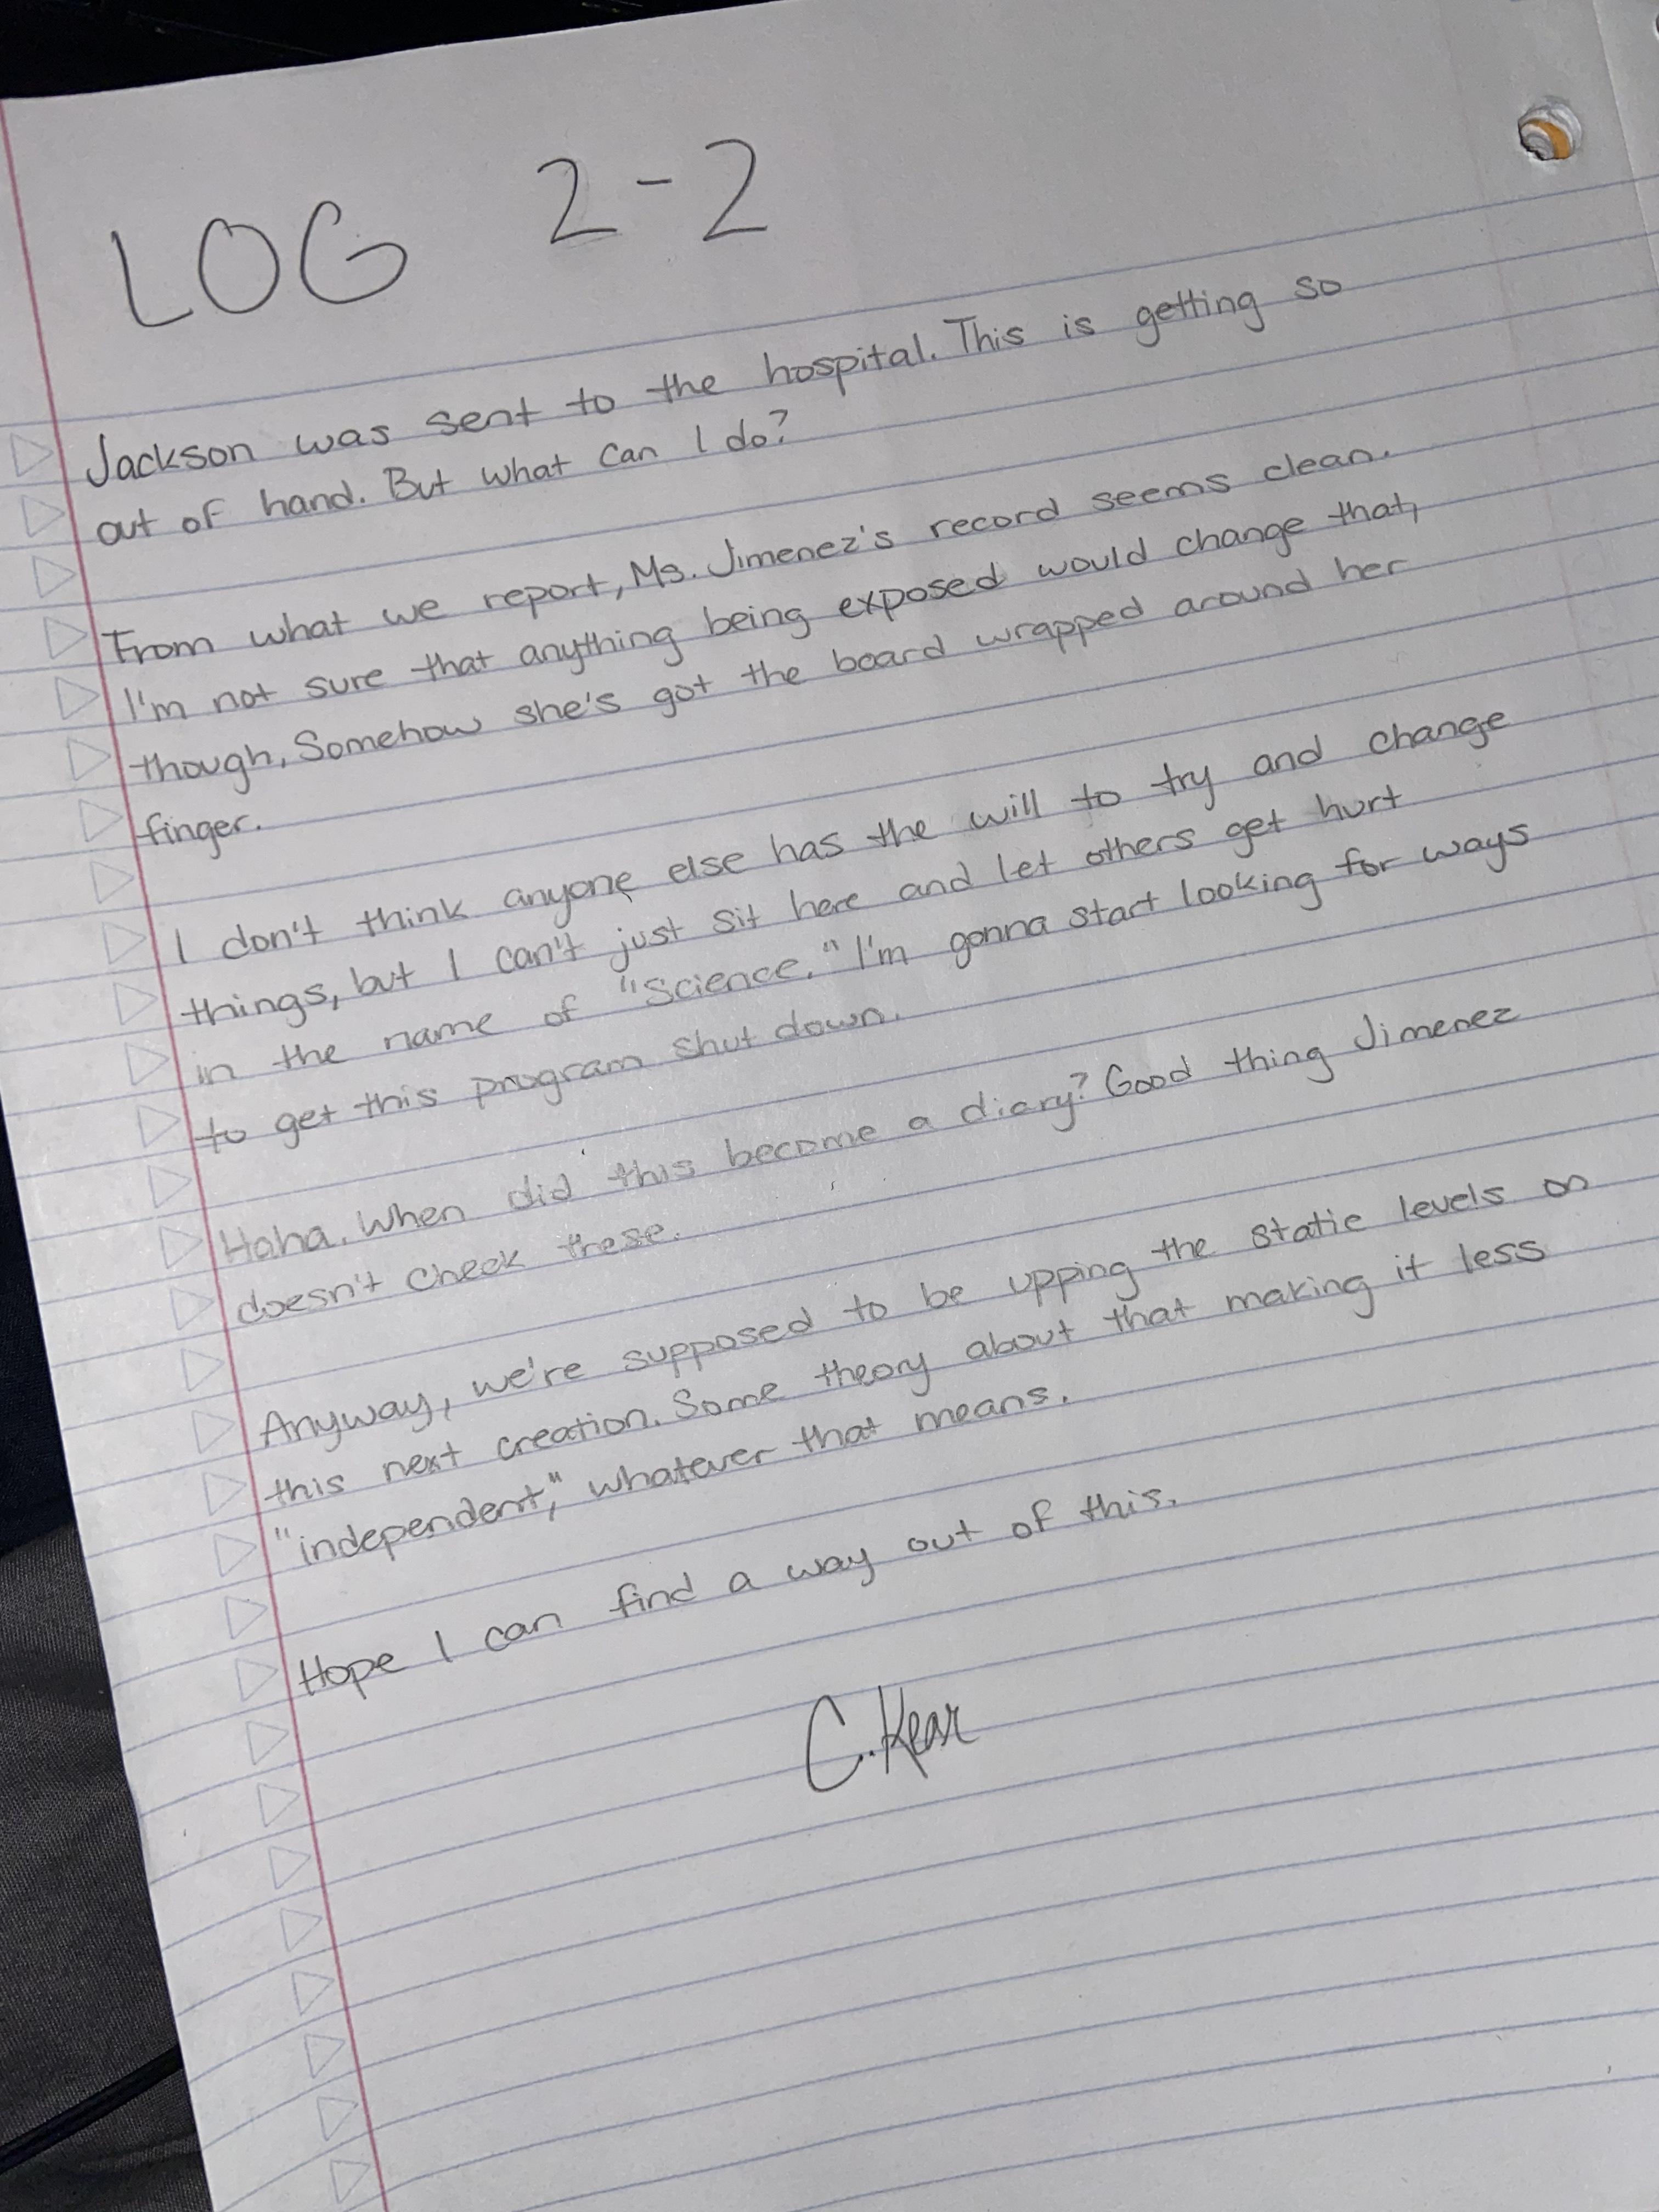 LOG 2-2
Jackson was sent to the hospital. This is getting so
out of hand. But what can I do?
From what we report, Ms. Jimenez's record seems clean.
I'm not sure that anything being exposed would change that,
though, Somehow she's got the board wrapped around her
finger.
I don't think anyone else has the will to try and change
things, but I can't just sit here and let others get hurt
in the name of "Science." I'm gonna start looking for ways
to get this program shut down.
Haha. When did this become a diary? Good thing Jimenez
doesn't check these.
Anyway, we're supposed to be upping the static levels on
this next creation. Some theory about that making it less
"independent," whatever that means.
Hope I can find a way out of this.
C. Kear